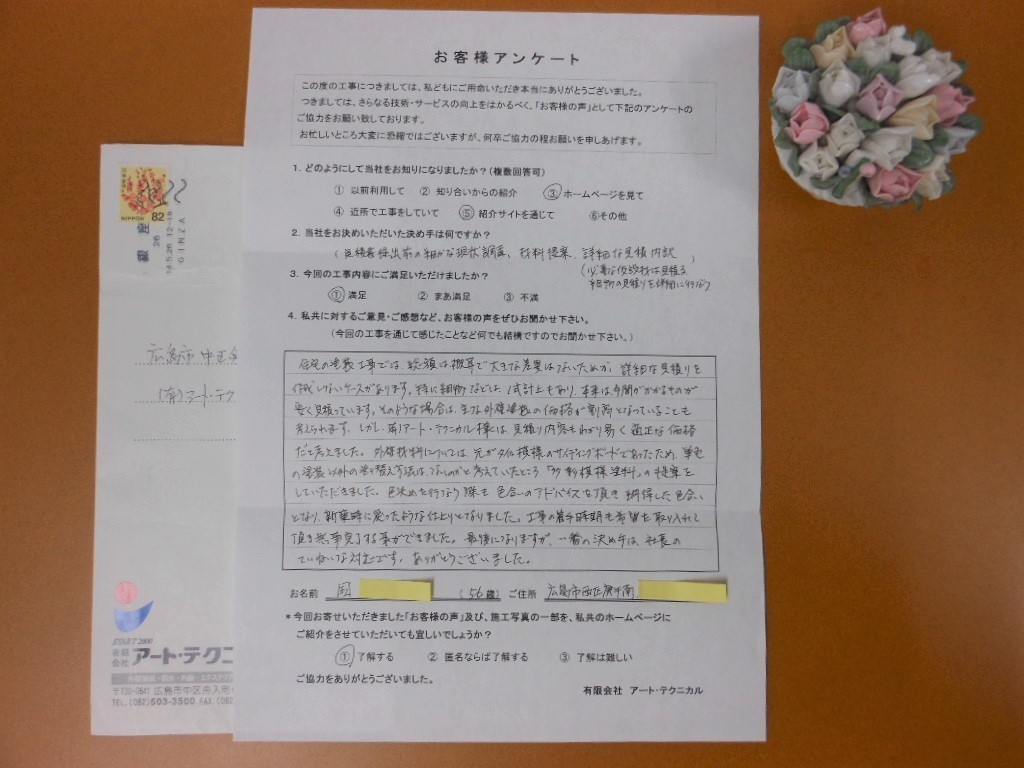 お客様アンケート
この度の工事につきましては、私どもにご用命いただき本当にありがとうございました。
つきましては、さらなる技術・サービスの向上をはかるべく、「お客様の声」として下記のアンケートの
ご協力をお願い致しております。
お忙しいところ大変に恐縮ではございますが、何卒ご協力の程お願いを申しあげます。
1. どのようにして当社をお知りになりましたか?(複数回答可)
① 以前利用して ② 知り合いからの紹介 ③ ホームページを見て
④ 近所で工事をしていて ⑤ 紹介サイトを通じて ⑥その他
2. 当社をお決めいただいた決め手は何ですか?
(見積書提出前の細かな現状調査、材料提案、詳細な見積内訳)
(必要な仮設材は見積る
細物の見積りを詳細に行う
3. 今回の工事内容にご満足いただけましたか?
① 満足 ② まあ満足 ③ 不満
4. 私共に対するご意見・ご感想など、お客様の声をぜひお聞かせ下さい。
(今回の工事を通じて感じたことなど何でも結構ですのでお聞かせ下さい。)
住宅の塗装工事では、総額は概算で大きな差異はないためか、詳細な見積りを
作成しないケースがあります。特に細物などは、1式計上もあり、本来は手間がかかるものが
安く見積っています。そのような場合は、主な外壁塗装の価格が割高となっていることも
考えられます。しかし、(有)アート・テクニカル様は、見積り内容もわかり易く適正な価格
だと考えました。外壁材料については、元がタイル模様のサイディングボードであったため、単色
の塗装以外の塗り替え方法はないものかと考えていたところ「多彩模様塗料」の提案を
していただきました。色決めを行なう際も色合いのアドバイスを頂き納得した色合い
となり、新築時に戻ったような仕上りとなりました。工事の着手時期も希望を取り入れて
頂き無事完了する事ができました。最後になりますが、一番の決め手は、社長の
ていねいな対応です。ありがとうございました。
お名前 (56歳) ご住所 広島市西区庚午南
*今回お寄せいただきました「お客様の声」及び、施工写真の一部を、私共のホームページに
ご紹介をさせていただいても宜しいでしょうか?
① 了解する ② 匿名ならば了解する ③ 了解は難しい
ご協力をありがとうございました。
有限会社 アート・テクニカル
NIPPON 82
銀座
26
14.5.26 12-18
GINZA
広島市中区舟
(有)アート・テク
START 2000
有限会社 アート・テクニ
〒730-0841 広島市中区舟入町
TEL. (082)503-3500 FAX. (082